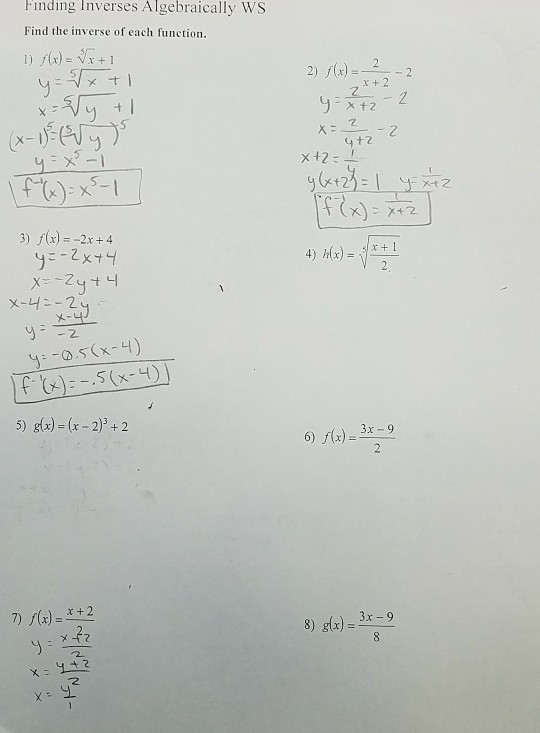 Finding Inverses Algebraically WS
Find the inverse of each function.
1) f(x) = ⁵√x + 1
y = ⁵√x + 1
x = ⁵√y + 1
(x-1)⁵ = (⁵√y)⁵
y = x⁵ - 1
f⁻¹(x) = x⁵ - 1
2) f(x) = 2/(x + 2) - 2
y = 2/(x+2) - 2
x = 2/(y+2) - 2
x + 2 = 1/y
y(x+2) = 1 y = 1/(x+2)
f⁻¹(x) = 1/(x+2)
3) f(x) = -2x + 4
y = -2x+4
x = -2y+4
x-4 = -2y
y = (x-4)/-2
y = -0.5(x-4)
f⁻¹(x) = -.5(x-4)
4) h(x) = ⁵√((x + 1)/2)
5) g(x) = (x - 2)³ + 2
6) f(x) = (3x - 9)/2
7) f(x) = (x + 2)/2
y = (x+2)/2
x = (y+2)/2
x = y/1
8) g(x) = (3x - 9)/8